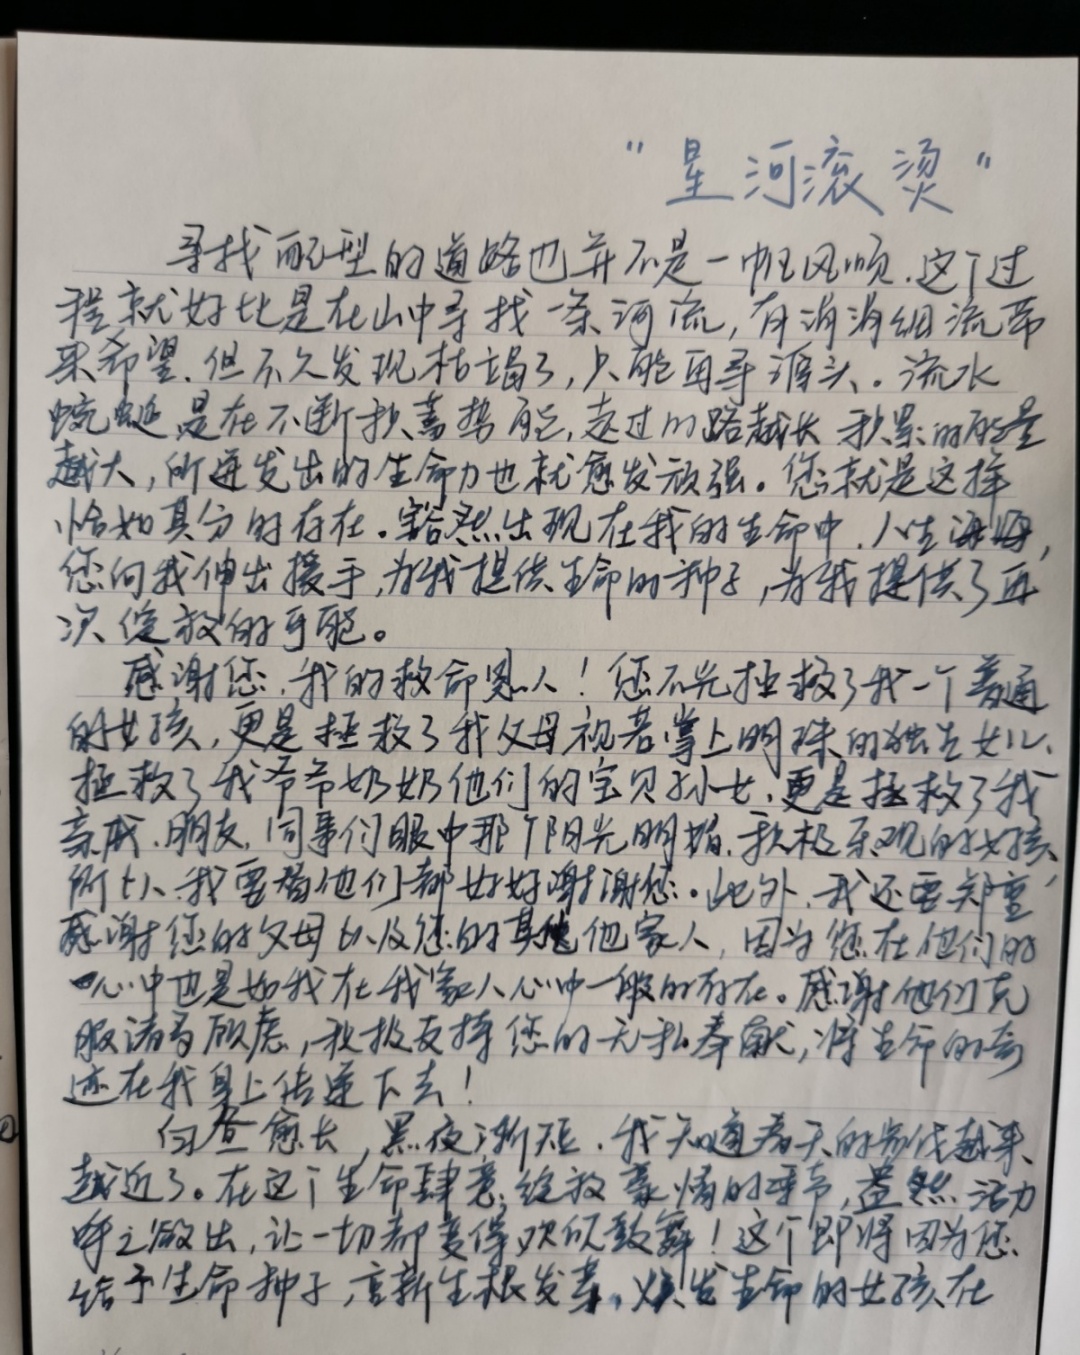 "星河滚烫"
寻找配型的道路也并不是一帆风顺，这个过
程就好比是在山中寻找一条河流，有涓涓细流带
来希望，但不久发现枯竭了，只能再寻源头。流水
蜿蜒是在不断积蓄势能，走过的路越长 积累的能量
越大，所迸发出的生命力也就愈发顽强。您就是这样
恰如其分的存在。豁然出现在我的生命中，人生海海，
您向我伸出援手，为我提供生命的种子，为我提供了再
次绽放的可能。
感谢您，我的救命恩人！您不光拯救了我一个普通
的女孩，更是拯救了我父母视若掌上明珠的独生女儿、
拯救了我爷爷奶奶他们的宝贝孙女，更是拯救了我
亲戚、朋友、同事们眼中那个阳光明媚、积极乐观的女孩，
所以，我要替他们都好好谢谢您。此外，我还要郑重
感谢您的父母以及您的其他家人，因为您在他们的
心中也是如我在我家人心中一般的存在。感谢他们克
服诸多顾虑，积极支持您的无私奉献，将生命的奇
迹在我身上传递下去！
白昼愈长，黑夜渐短，我知道春天的步伐越来
越近了。在这个生命肆意绽放豪情的季节，盎然活力
呼之欲出，让一切都变得欢欣鼓舞！这个即将因为您
给予生命种子，重新生根发芽、焕发生命的女孩在